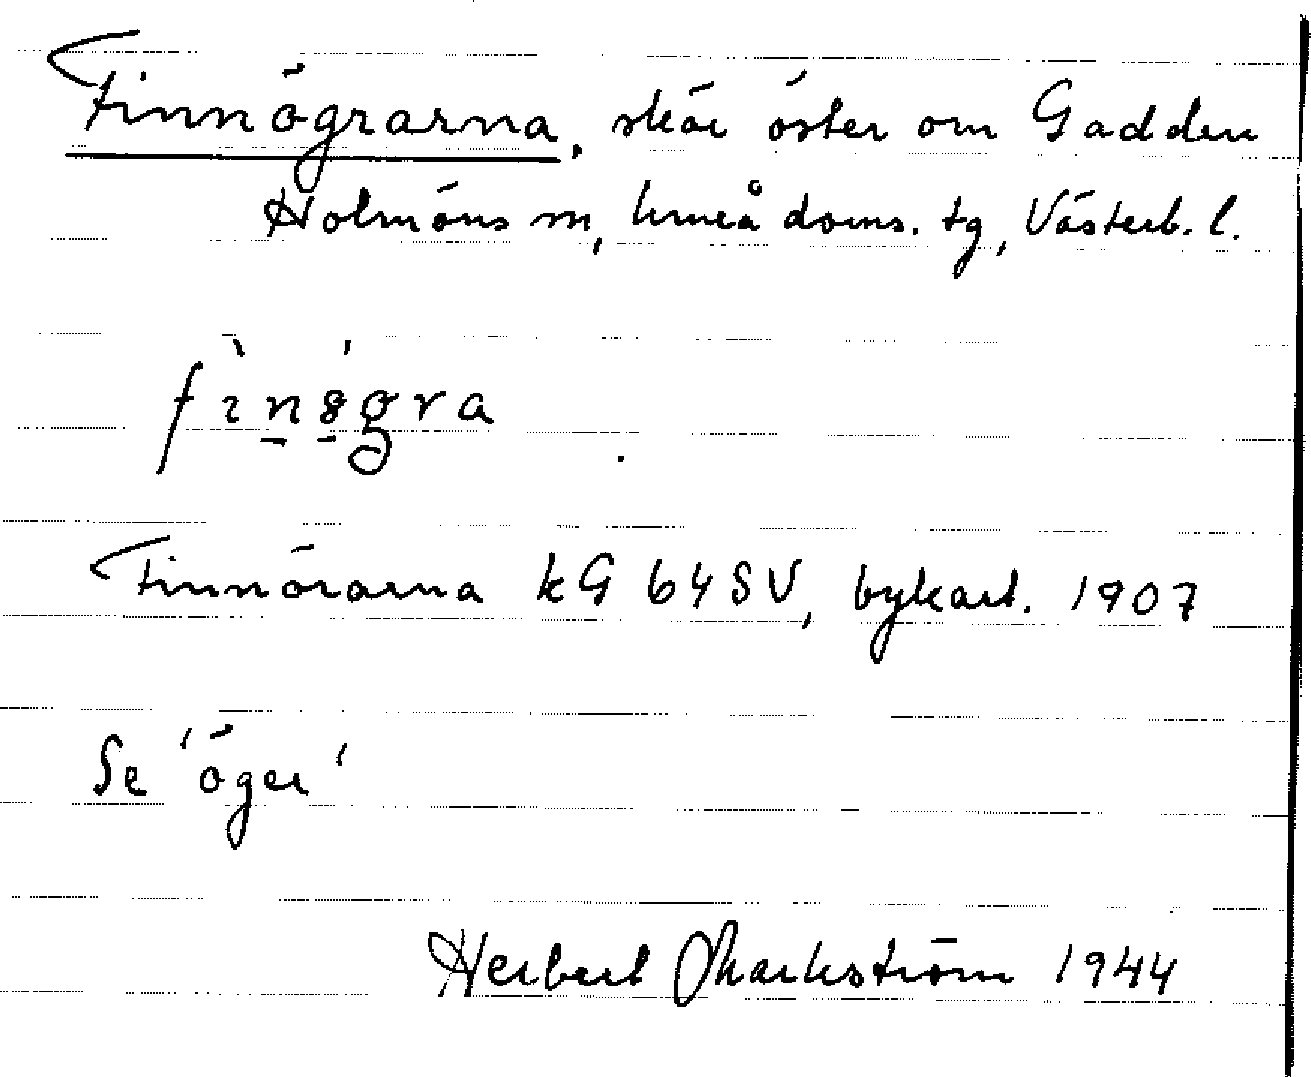 Finnögrarna, skär öster om Gadden
Holmöns sn, Umeå doms. tg, Västerb. l.
fìnö́gra
Finnörarna kG 64SV, bykart. 1907
Se 'öger'
Herbert Markström 1944